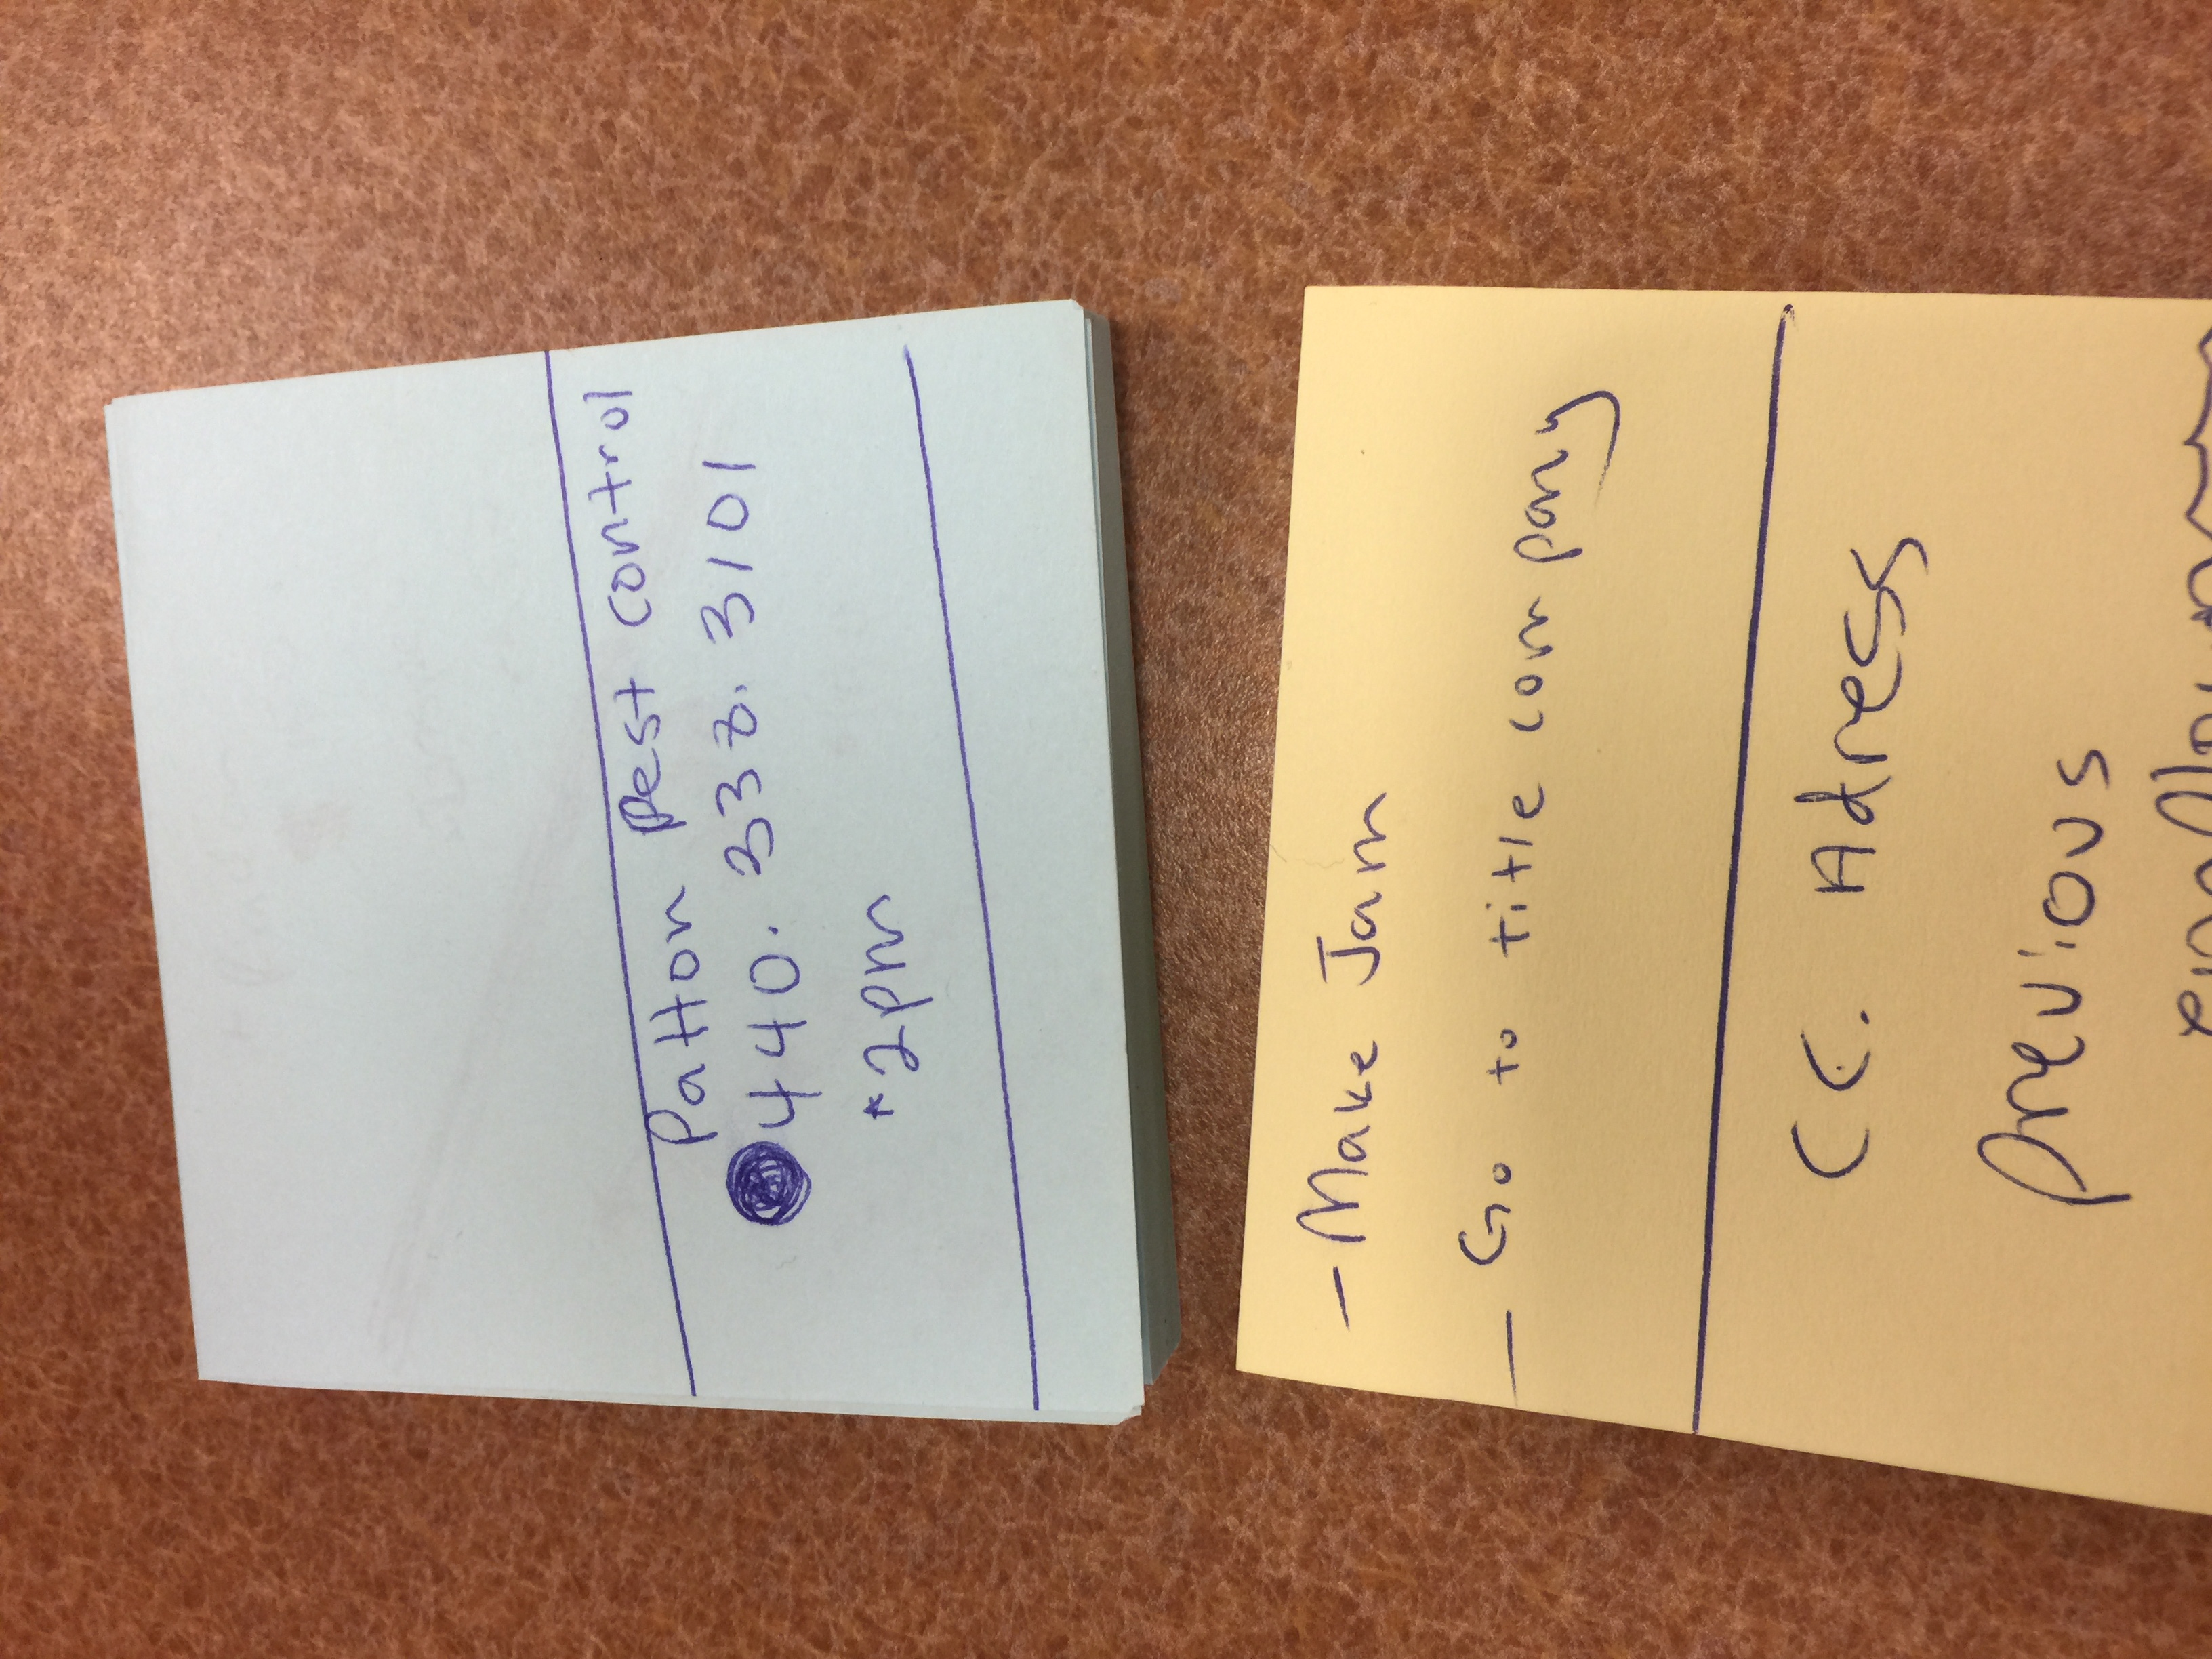 Patton Pest control
440. 338. 3101
*2pm
- Make Jam
- Go to title company
CC. Adress
previous